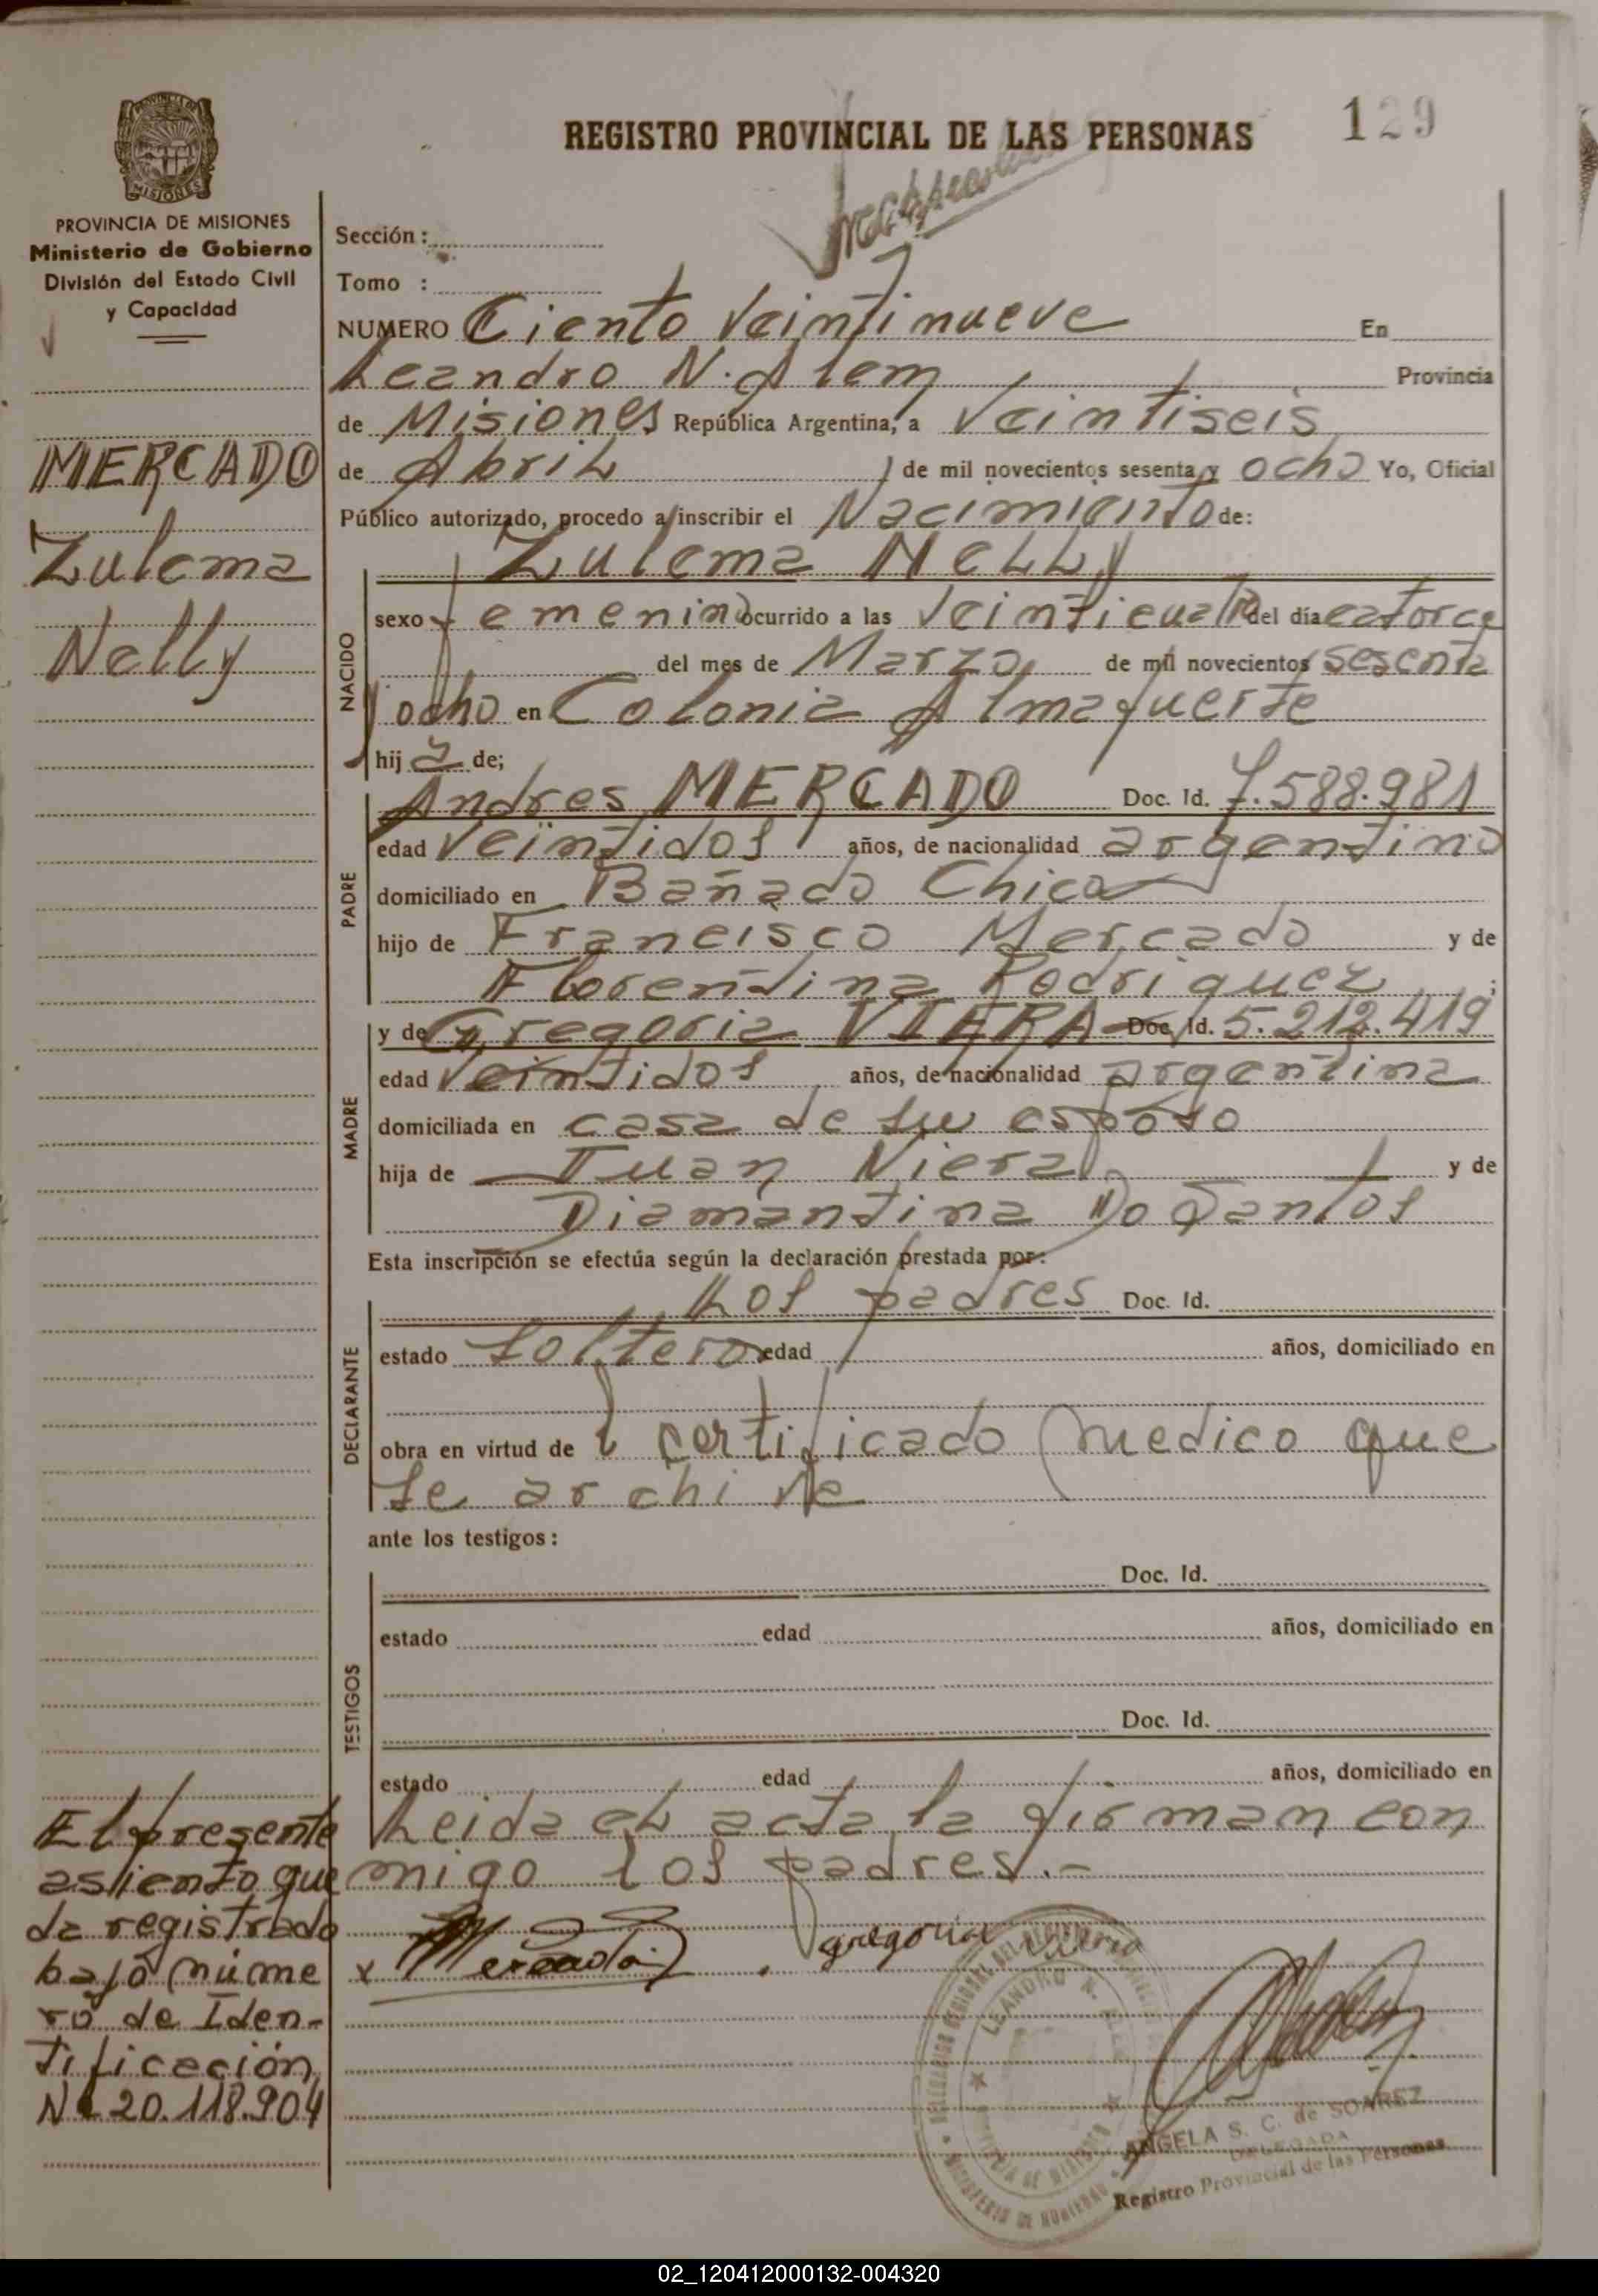 REGISTRO PROVINCIAL DE LAS PERSONAS
129
PROVINCIA DE MISIONES
PROVINCIA DE MISIONES
Ministerio de Gobierno
División del Estado Civil
y Capacidad
MERCADO
Zulema
Nelly
Sección :
Tomo :
NUMERO Ciento Veintinueve En
Leandro N. Alem Provincia
de Misiones República Argentina, a Veintiseis
de Abril de mil novecientos sesenta y ocho Yo, Oficial
Público autorizado, procedo a inscribir el Nacimiento de:
Zulema Nelly
NACIDO
sexo femenino ocurrido a las Veinticuatro del día catorce
del mes de Marzo de mil novecientos sesenta
y ocho en Colonia Almafuerte
hij a de;
PADRE
Andres MERCADO Doc. Id. 7.588.981
edad Veintidos años, de nacionalidad argentino
domiciliado en Bañado Chico
hijo de Francisco Mercado y de
Florentina Rodriguez ;
MADRE
y de Gregoria VIERA Doc. Id. 5.212.419
edad Veintidos años, de nacionalidad argentina
domiciliada en casa de su esposo
hija de Juan Viera y de
Diamantina Do Santos
Esta inscripción se efectúa según la declaración prestada por:
DECLARANTE
Los padres Doc. Id.
estado Soltero edad años, domiciliado en
obra en virtud de certificado medico que
se archive
ante los testigos:
TESTIGOS
Doc. Id.
estado edad años, domiciliado en
Doc. Id.
estado edad años, domiciliado en
Leida el acta la firman con
migo los padres.-
El presente
asiento que
da registrado
bajo núme
ro de Iden-
tificación
Nº 20.118.904
x Mercado
gregoria viera
LEANDRO N. ALEM
ANGELA S. C. de SOAREZ
DELEGADA
Registro Provincial de las Personas
02_120412000132-004320